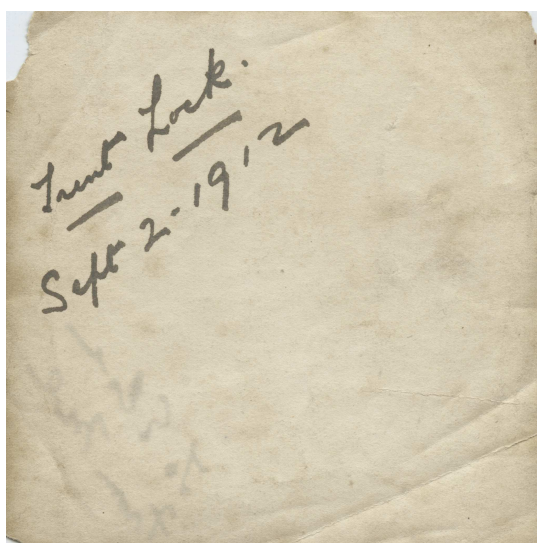 Trent Lock.
Sept 2-1912